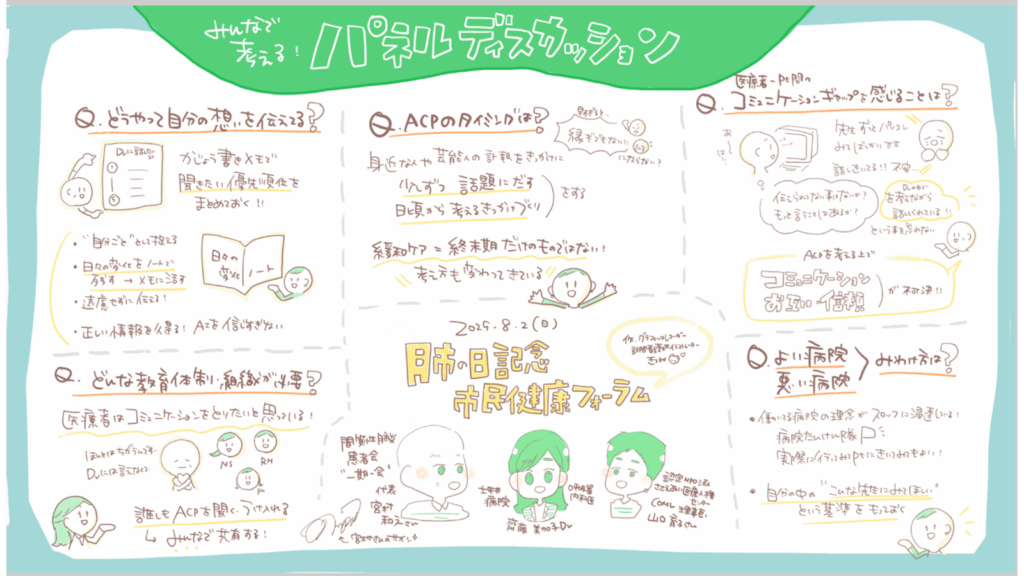 みんなで
考える!
パネルディスカッション
Q. どうやって自分の想いを伝える?
かじょう書きメモで
聞きたい優先順位を
まとめておく!!
・"自分ごと"として捉える
・日々の変化をノートで
残す → メモに活す
・遠慮せずに伝える!
・正しい情報を得る! AIを信じすぎない
日々の
変化
ノート
Q. ACPのタイミングは?
縁起でもない!
にならない?
身近な人や芸能人の訃報をきっかけに
少しずつ 話題にだす
日頃から考えるきっかけづくり
をする
緩和ケア = 終末期だけのものではない!
考え方も変わってきている
医療者-Pt間の
Q. コミュニケーションギャップを感じることは?
先生ずっとパソコン
みてばっかりです
話しきいてる!? 不安…
伝えられてない事はないか?
もっと言うことはあるか?
を考えながら
話してくれている!!
というのも忘れない
ACPを考える上で
コミュニケーション
お互い信頼
が不可決!!
Q. どんな教育体制・組織が必要?
医療者はコミュニケーションをとりたいと思っている!
ほんとはちがうって…
Drには言えなくて…
NS
RH
誰もがACPを聞く・うけ入れる
↳ みんなで共有する!
2025.8.2(日)
肺の日記念
市民健康フォーラム
作. グラフィックレコーダー
間質性肺炎
患者会
"一期一会"
代表
宮村
和人さん
七年井
病院
呼吸器
内科医
齊藤 美加子Dr
認定NPO法人
ささえあい医療人権
センター
COML 理事長
山口 育子さん
Q. よい病院
悪い病院
みわけ方は?
・働いてる病院の理念がスタッフに浸透している!
病院たんけん隊
実際に行ってみてPtにきいてみてもよい!
・自分の中の"こんな先生にみてほしい"
という基準をもっておく